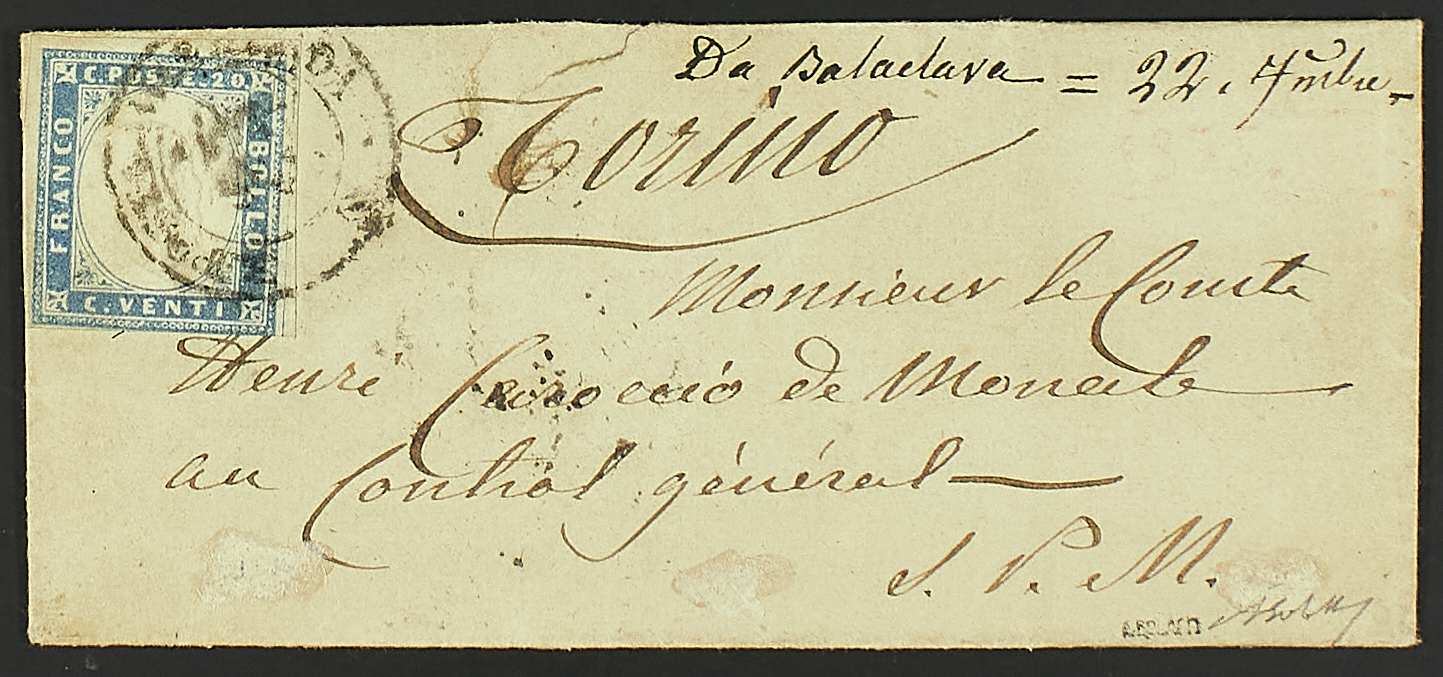 C. POSTE. 20.
FRANCO
BOLLO
C. VENTI
Da Balaclava = 22. 7mbre
Torino
Monsieur le Comte
Henri de
au Contrôl général
S. P. M.